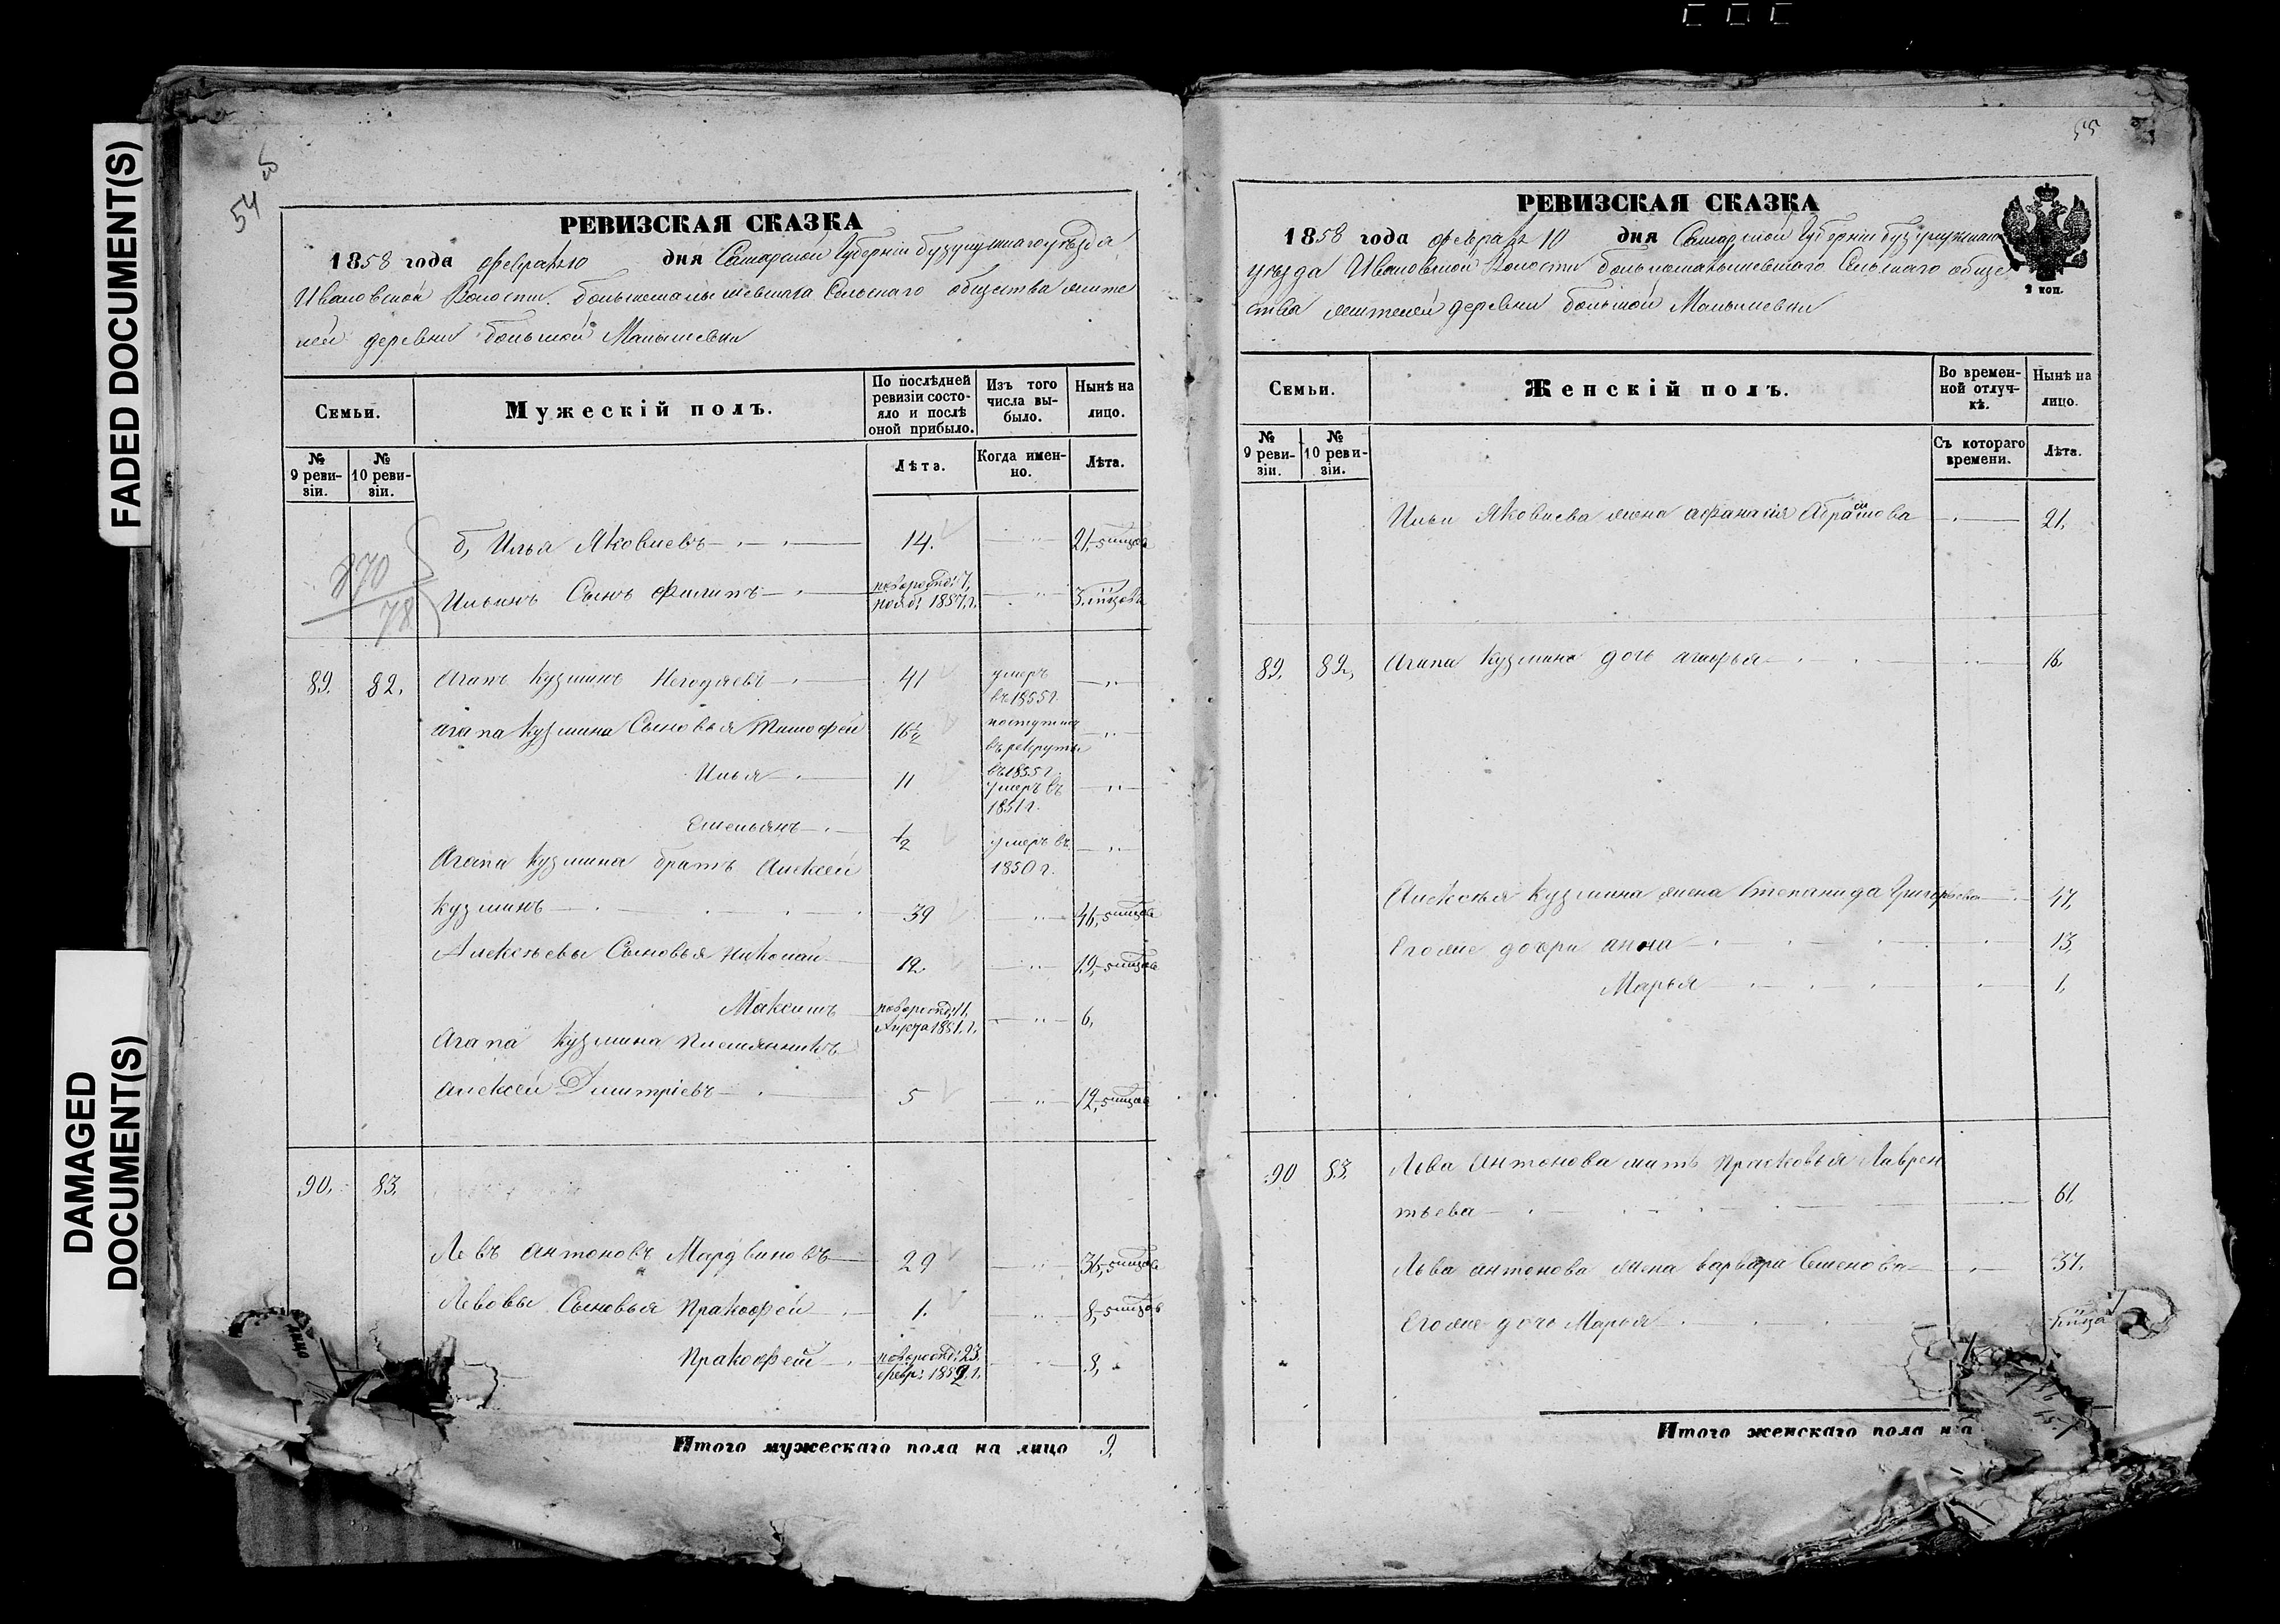 FADED DOCUMENT(S)
DAMAGED
DOCUMENT(S)
54
РЕВИЗСКАЯ СКАЗКА
1858 года февраля 10 дня Самарской Губерніи бузулукскаго уѣзда
Ивановской Волости большемалышевскаго Сельскаго общества жите
лей деревни большой Малышевки
Семьи.
Мужескій полъ.
По послѣдней ревизіи состояло и послѣ оной прибыло.
Изъ того числа выбыло.
Нынѣ на лицо.
№ 9 ревизіи.
№ 10 ревизіи.
Лѣта.
Когда именно.
Лѣта.
б, Илья Яковлевъ 14. 21,
Ильинъ Сынъ Филипъ 1857 г.
78
89. 82. Агапъ Кузминъ 41 умеръ въ 1855 г.
Агапа Кузмина Сыновья Тимофей 16½ поступилъ въ рекруты въ 1855 г.
Илья 11 умеръ въ 1851 г.
Емельянъ ½ умеръ въ 1850 г.
Агапа Кузмина братъ Алексей
Кузминъ 39 46,
Алексѣевы Сыновья Николай 12. 19,
Максимъ 1851. г. 6,
Агапа Кузмина племянникъ
Алексей Дмитріевъ 5 12,
90. 83.
Левъ Антоновъ Мардвиновъ 29 36,
Левовы Сыновья Пракофей 1. 8,
Пракофей 8,
Итого мужескаго пола на лицо 9.
55
РЕВИЗСКАЯ СКАЗКА
2 коп.
1858 года февраля 10 дня Самарской Губерніи бузулукскаго
уѣзда Ивановской Волости большемалышевскаго Сельскаго обще
ства жителей деревни большой Малышевки
Семьи.
Женскій полъ.
Во временной отлучкѣ.
Нынѣ на лицо.
№ 9 ревизіи.
№ 10 ревизіи.
Съ котораго времени.
Лѣта.
Ильи Яковлева жена Афанасія Абрамова 21,
89, 82, Агапа Кузмина дочь Агафья 16.
Алексѣя Кузмина жена Степанида Григорьева 47,
Егоже дочри Анна 13,
Марья 1,
90 83. Льва Антонова мать Прасковья Лаврен
тьева 61,
Льва Антонова жена Варвара Семенова 37,
Егоже дочь Марья
Итого женскаго пола на